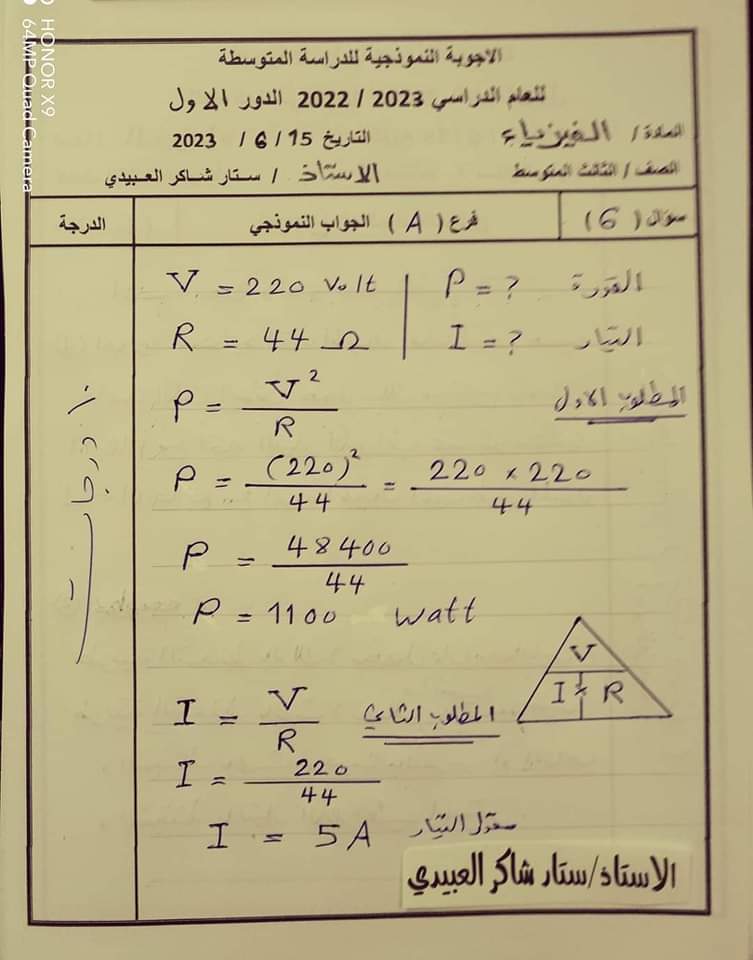 HONOR X9
64MP Quad Camera
الاجوبة النموذجية للدراسة المتوسطة
للعام الدراسي 2023 / 2022 الدور الاول
المادة / الفيزياء التاريخ 15 / 6 / 2023
الصف / الثالث المتوسط الاستاذ / ستار شاكر العبيدي
سؤال ( 6 ) فرع ( A ) الجواب النموذجي الدرجة
V = 220 Volt P = ? القدرة
R = 44 Ω I = ? التيار
P = V² / R المطلوب الاول
P = (220)² / 44 = 220 × 220 / 44
P = 48400 / 44
P = 1100 watt
١٠ درجات
V
I × R
I = V / R المطلوب الثاني
I = 220 / 44
I = 5 A مقدار التيار
الاستاذ/ستار شاكر العبيدي